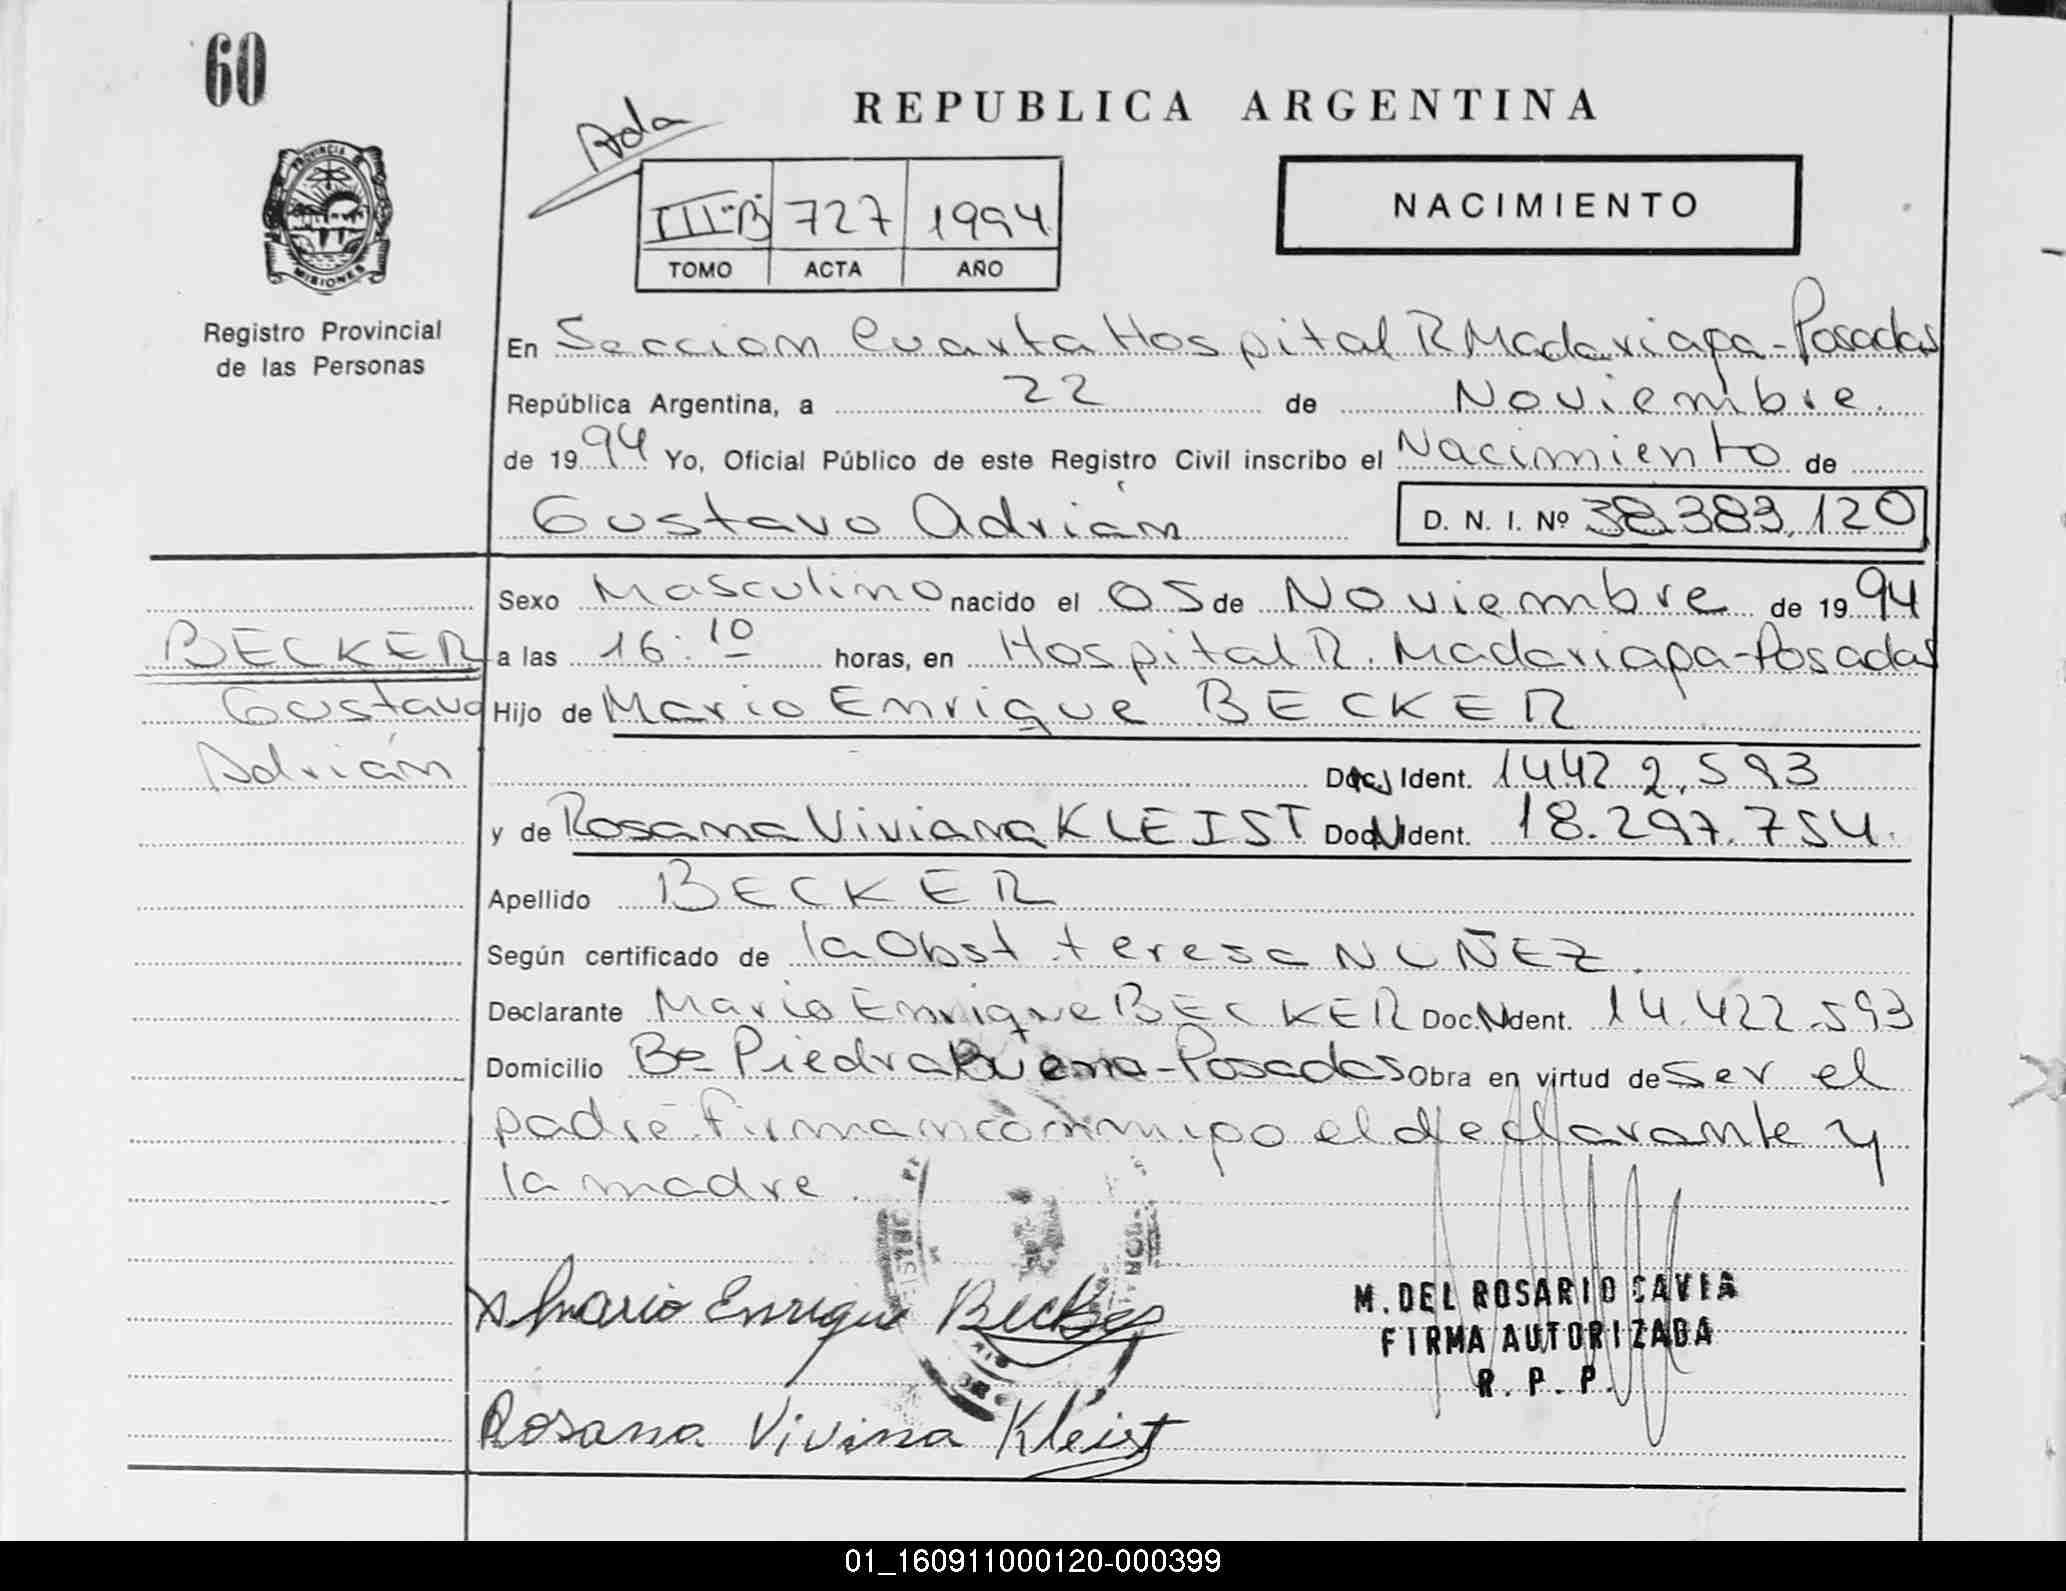 60
REPUBLICA ARGENTINA
Ada
III-B 727 1994
TOMO ACTA AÑO
NACIMIENTO
PROVINCIA DE
MISIONES
Registro Provincial
de las Personas
En Seccion Cuarta Hospital R Madariaga-Posadas
República Argentina, a 22 de Noviembre.
de 1994 Yo, Oficial Público de este Registro Civil inscribo el Nacimiento de
Gustavo Adrian D. N. I. Nº 38.383.120
Sexo Masculino nacido el 05 de Noviembre de 1994
BECKER
a las 16:10 horas, en Hospital R. Madariaga-Posadas
Gustavo
Hijo de Mario Enrique BECKER
Adrián
Doc. Ident. 14422.593
y de Rosana Viviana KLEIST Doc. Ident. 18.297.754.
Apellido BECKER
Según certificado de la Obst teresa NUÑEZ.
Declarante Mario Enrique BECKER Doc. Ident. 14.422.593
Domicilio Bº Piedra Buena-Posadas Obra en virtud de ser el
padre. Firman conmigo el declarante y
la madre.
Mario Enrique Becker
M. DEL ROSARIO CAVIA
FIRMA AUTORIZADA
R. P. P.
Rosana Vivina Kleist
01_160911000120-000399